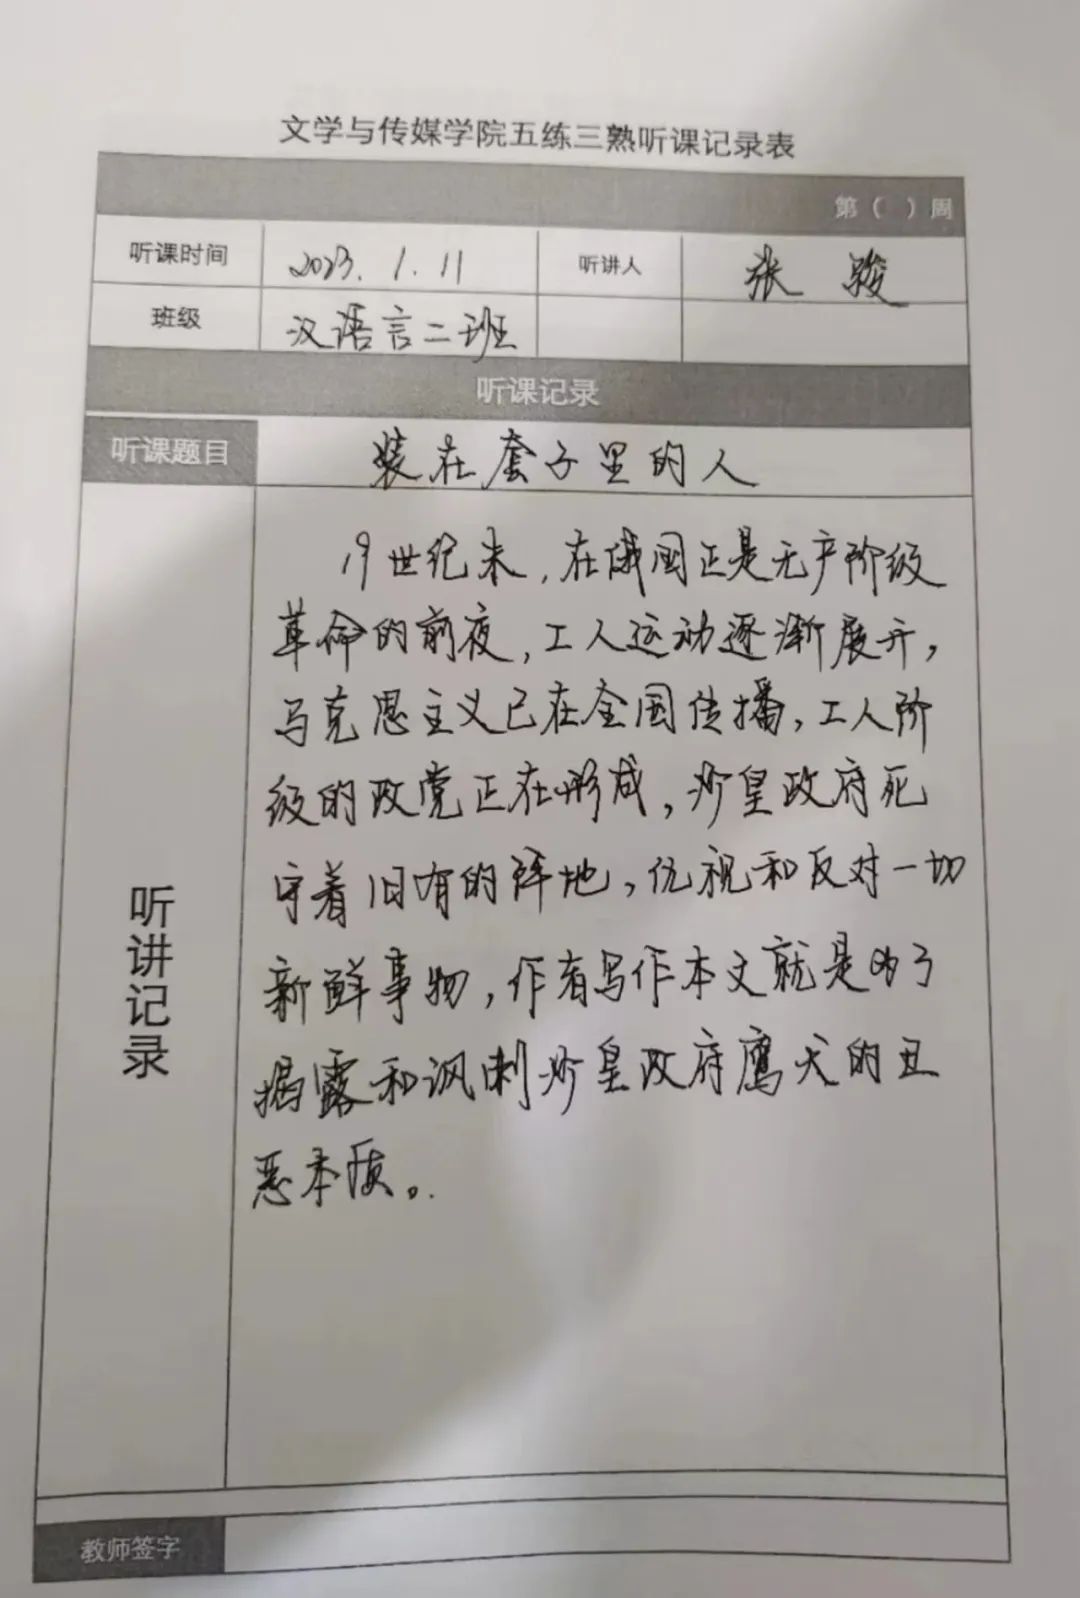 文学与传媒学院五练三熟听课记录表
第（ ）周
听课时间 2023.1.11 听讲人 张骏
班级 汉语言二班
听课记录
听课题目 装在套子里的人
听讲记录
19世纪末，在俄国正是无产阶级
革命的前夜，工人运动逐渐展开，
马克思主义已在全国传播，工人阶
级的政党正在形成，沙皇政府死
守着旧有的阵地，仇视和反对一切
新鲜事物，作者写作本文就是为了
揭露和讽刺沙皇政府鹰犬的丑
恶本质。
教师签字